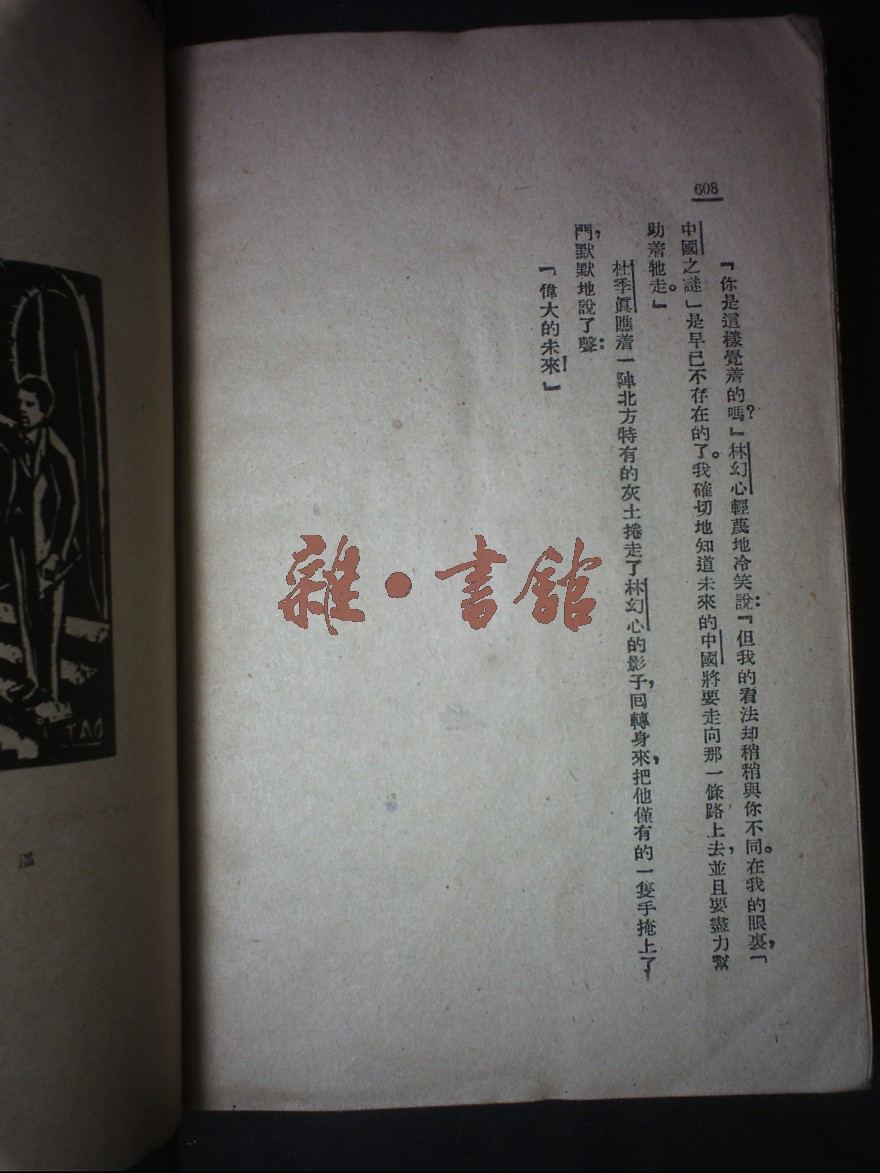 608
『你是這樣覺着的嗎?』林幻心輕蔑地冷笑說:『但我的看法却稍稍與你不同。在我的眼裏,「
中國之謎」是早已不存在的了。我確切地知道未來的中國將要走向那一條路上去,並且要盡力幫
助着牠走。』
杜季眞瞧着一陣北方特有的灰土捲走了林幻心的影子,回轉身來,把他僅有的一隻手掩上了
門,默默地說了聲:
「偉大的未來!」
雜·書館
TAO
溫